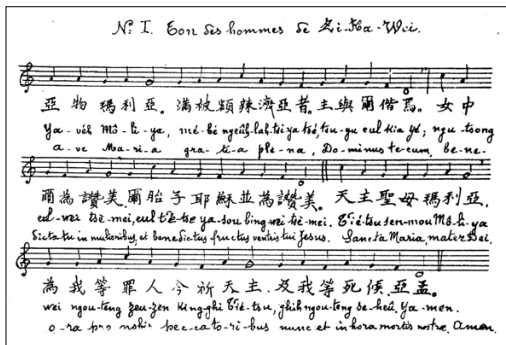 Nº I. Ton des hommes de Zi-Ka-Wei.
亞物瑪利亞。滿被額辣濟亞者。主與爾偕焉。女中
Ya-véh Mô-li-ya, mé-bé ngeûh-lah-tsi-ya tsé, tsu-yu eul kia yé; ngu-tsong
a-ve Ma-ri-a gra-ti-a ple-na, Do-minus te-cum, be-ne-
爾為讚美爾胎子耶穌並為讚美。天主聖母瑪利亞,
eul-wei tsè-mei, eul t'è-tse ya-sou bing wei tsè-mei. T'ié-tsu sen-mou Mô-li-ya
dicta tu in mulieribus, et benedictus fructus ventris tui Jesus. Sancta Maria, mater Dei.
為我等罪人今祈天主。及我等死候。亞孟。
wei ngou-teng zeu-zen king ghi T'ié-tsu, ghih ngou-teng se-heû. Ya-men.
o-ra pro nobis pec-ca-to-ri-bus nunc et in hora mortis nostre. Amen.